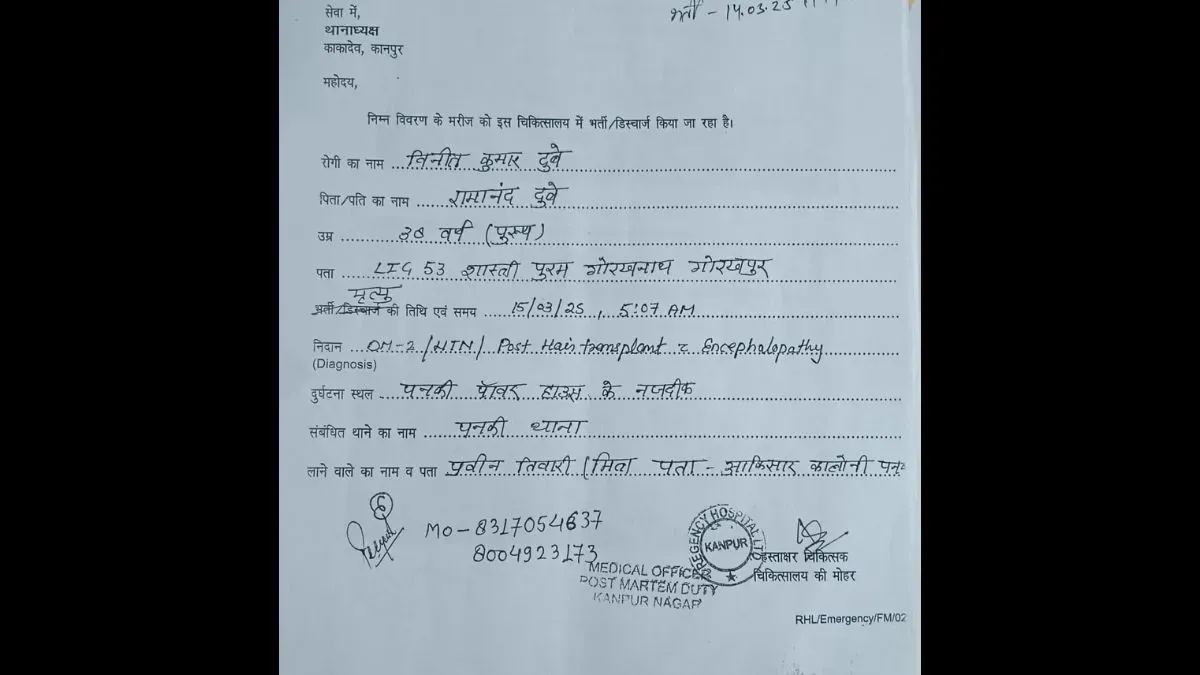 सेवा में,
भर्ती - 14.03.25
थानाध्यक्ष
काकादेव, कानपुर
महोदय,
निम्न विवरण के मरीज को इस चिकित्सालय में भर्ती/डिस्चार्ज किया जा रहा है।
रोगी का नाम ... विनीत कुमार दुबे
पिता/पति का नाम ... रामानंद दुबे
उम्र ... 38 वर्ष (पुरुष)
पता ... LIG 53 शास्त्री पुरम गोरखनाथ गोरखपुर
मृत्यु
भर्ती/डिस्चार्ज की तिथि एवं समय ... 15/03/25, 5:07 AM
निदान ... DM-2/HTN/ Post Hair transplant c Encephalopathy
(Diagnosis)
दुर्घटना स्थल ... पनकी पॉवर हाउस के नजदीक
संबंधित थाने का नाम ... पनकी थाना
लाने वाले का नाम व पता ... प्रवीन तिवारी (मित्र पता-
MO - 8317054637
8004923173
REGENCY HOSPITAL LTD
KANPUR
हस्ताक्षर चिकित्सक
चिकित्सालय की मोहर
MEDICAL OFFICER
POST MARTEM DUTY
KANPUR NAGAR
RHL/Emergency/FM/02